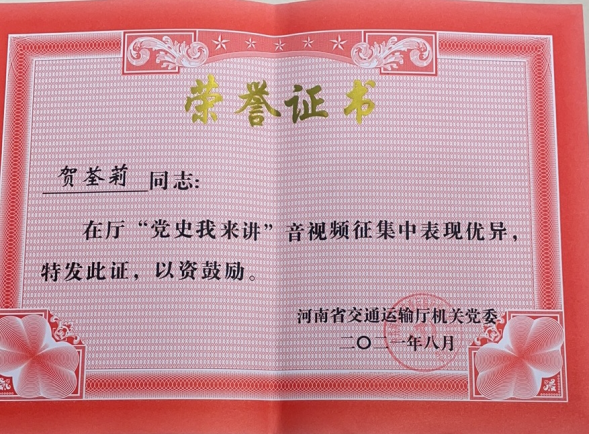 荣誉证书
贺荃莉 同志:
在厅“党史我来讲”音视频征集中表现优异,
特发此证,以资鼓励。
河南省交通运输厅机关党委
二〇二一年八月